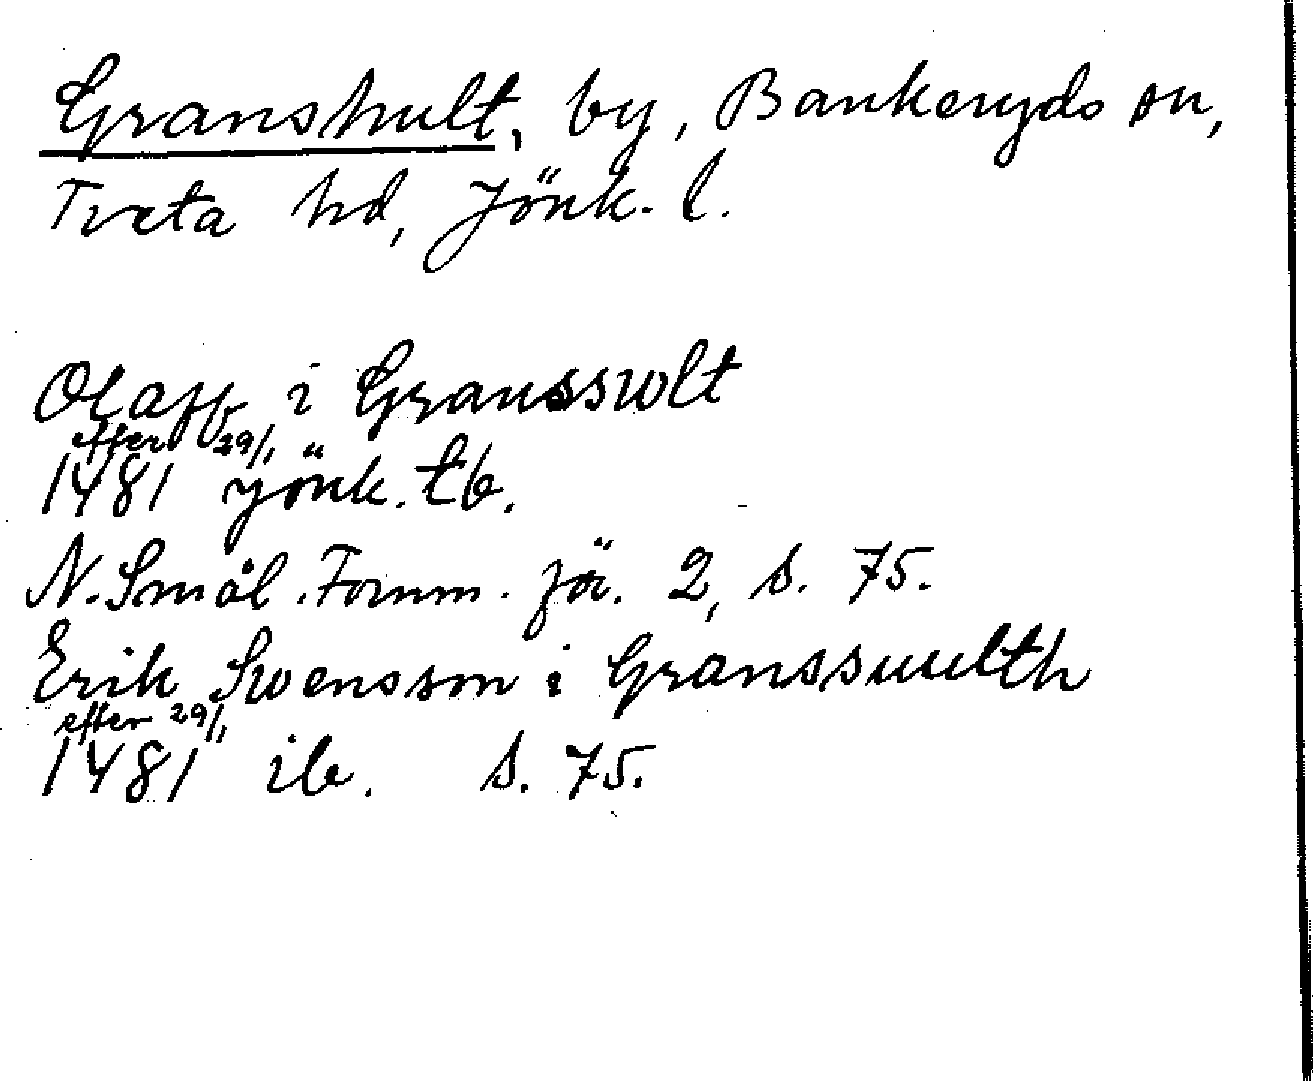 Granshult, by, Bankeryds sn,
Tveta hd, Jönk. l.
Olaff i Gransswlt
efter 29/1
1481 Jönk. tb.
N. Smål. Fornm. fö. 2, s. 75.
Erik Swensson i Granssuulth
efter 29/1
1481 ib. s. 75.